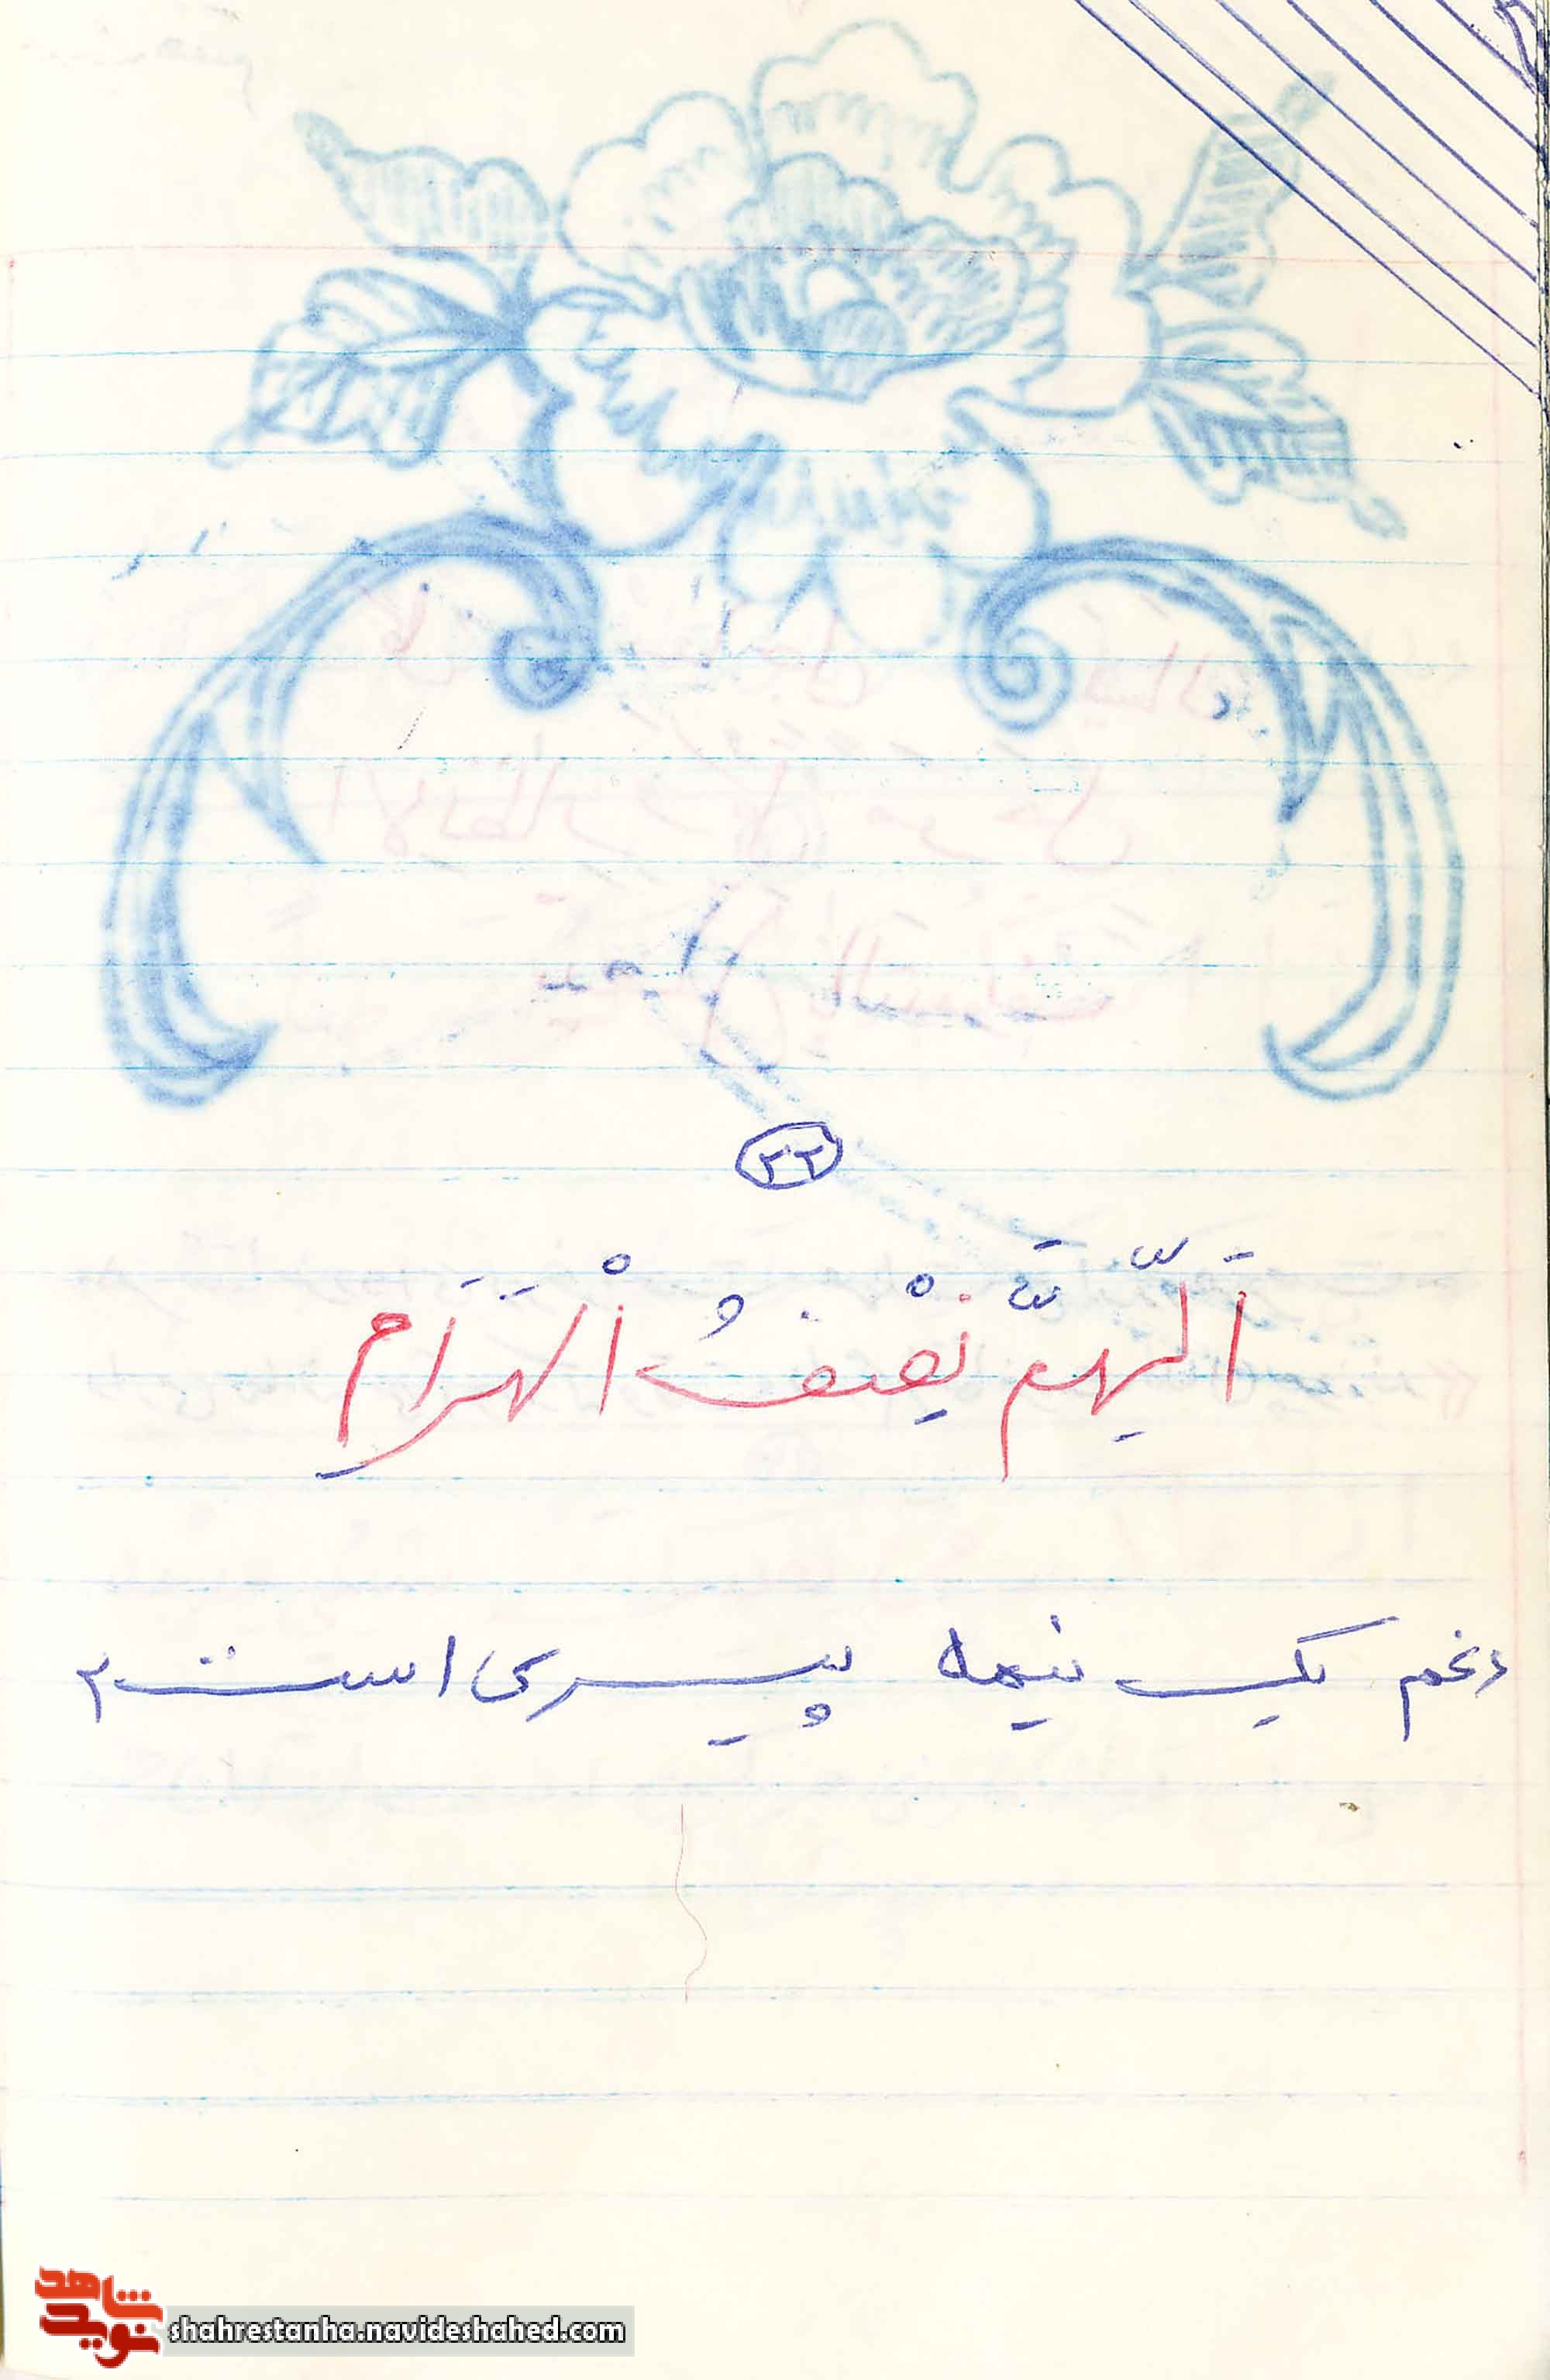 ۲۲
اَلّهِمَّ نِصْفُ الْهَرَامِ
غم یک نیمه پیری است
نوید شاهد
shahrestanha.navideshahed.com